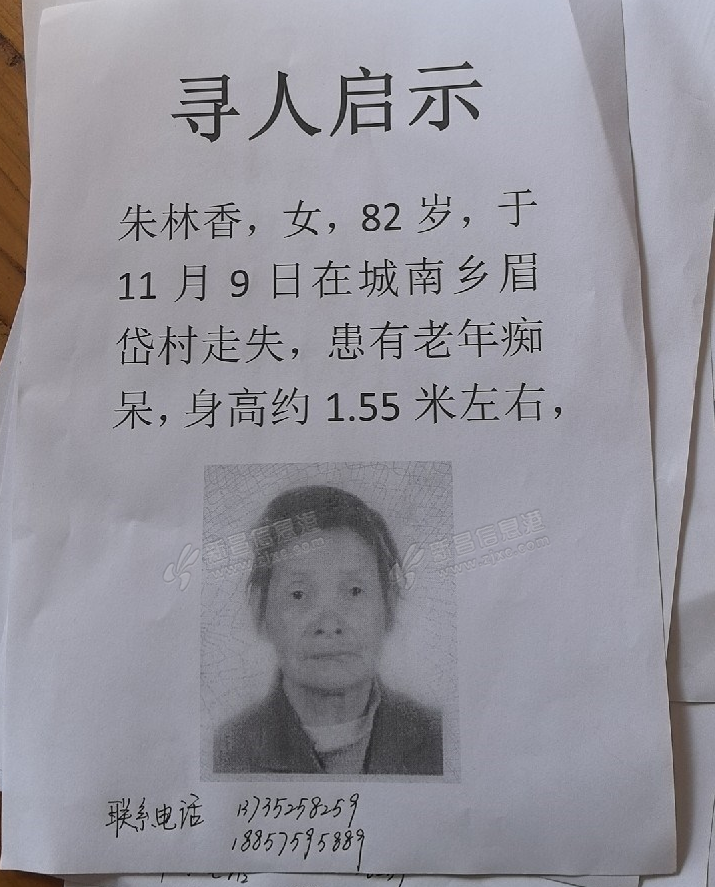 寻人启示
朱林香，女，82 岁，于
11 月 9 日在城南乡眉
岱村走失，患有老年痴
呆，身高约 1.55 米左右，
新昌信息港
www.zjxc.com
新昌信息港
www.zjxc.com
联系电话 13735258259
18857595889